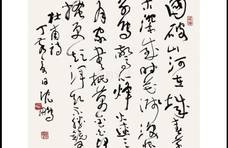 國破山河在城春草
木深感時花濺淚恨
別鳥驚心烽火連三
月家書抵萬金白頭
搔更短渾欲不勝簪
杜甫詩
丁亥日沈鵬